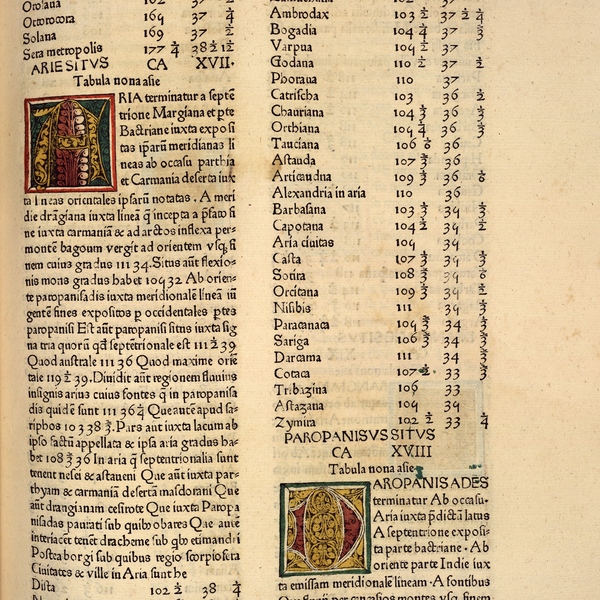 Ottorocora 169 37 ¼
Solana 169 37 ½
Sera metropolis 177 ¼ 38 ½ 1½
ARIE SITVS CA XVII.
Tabula nona asie
ARIA terminatur a septē
trione Margiana et pte
Bactriane iuxta exposi
tas ipsarū meridianas li
neas ab occasu parthia
et Carmania deserta iux
ta lineas orientales ipsarū notatas. A meri
die drāgiana iuxta lineā q̄ incepta a p̄fato fi
ne iuxta carmaniā & ad arctos inflexa per-
montē bagoum vergit ad orientem vsq; fi
nem cuius gradus 111 34. Situs aūt flexio-
nis mons gradus habet 109 32 Ab orien-
te paropanisadis iuxta meridionalē lineā iū
gentē fines expositos p occidentales ptes
paropanisi Est aūt paropanisi situs iuxta sig
na tria quorū qd̄ septētrionale est 111 ½ 39
Quod australe 111 36 Quod maxime oriē
tale 119 ½ 39. Diuidit aūt regionem fluuius
insignis arius cuius fontes q in paropanisa
dis quidē sunt 111 36 ¼ Que autē apud sa-
riphos 103 38 ⅓. Pars aut iuxta lacum ab
ipso factū appellata & ipsa aria gradus ha-
bet 108 ⅔ 36 In aria q septentrionalia sunt
tenent nesei & astaueni Que aūt iuxta par-
thyam & carmaniā desertā masdorani Que
aūt drangianam cesirote Que iuxta Paropa
nisadas pautati sub quib; obares Que autē
interiacēt tenēt dracheme sub qb; etimandri
Postea borgi sub quibus regio scorpiofera
Ciuitates & ville in Aria sunt he
Dista 102 ½ 38 ¼
Ambrodax 103 ½ 37 ½ ¼
Bogadia 104 ¼ 37 ⅔
Varpua 109 ½ 37
Godana 110 ½ 37
Phoraua 110 37
Catrischa 103 36 ½
Chauriana 104 ⅓ 36 ⅓
Orthiana 109 ¼ 36 ⅓
Tauciana 106 6 36 ⅓
Astauda 107 ⅔ 36
Articaudna 109 ⅓ 36 6
Alexandria in aria 110 36
Barbasana 103 ⅓ 34 ⅓
Capotana 104 ½ 34 ½
Aria ciuitas 109 34
Casta 107 ⅓ 34 ⅓
Sotira 108 ⅔ 34 6
Orcitana 109 ⅓ 34 ⅓
Nisibis 111 34 ⅓
Paracanaca 109 ⅔ 34 ⅓
Sariga 106 ⅔ 34 ⅔
Darcama 111 34 ⅓
Cotaca 107 ½ 33 ⅔
Tribazina 106 33
Astazana 109 33
Zymira 102 ½ 33 ¼
PAROPANISVS SITVS
CA XVIII
Tabula nona asie
PAROPANISADES
terminatur Ab occasu.
Aria iuxta p̄dictū latus
A septentrione exposi-
ta parte bactriane. Ab
oriente parte Indie iux
ta emissam meridionalē lineam. A fontibus